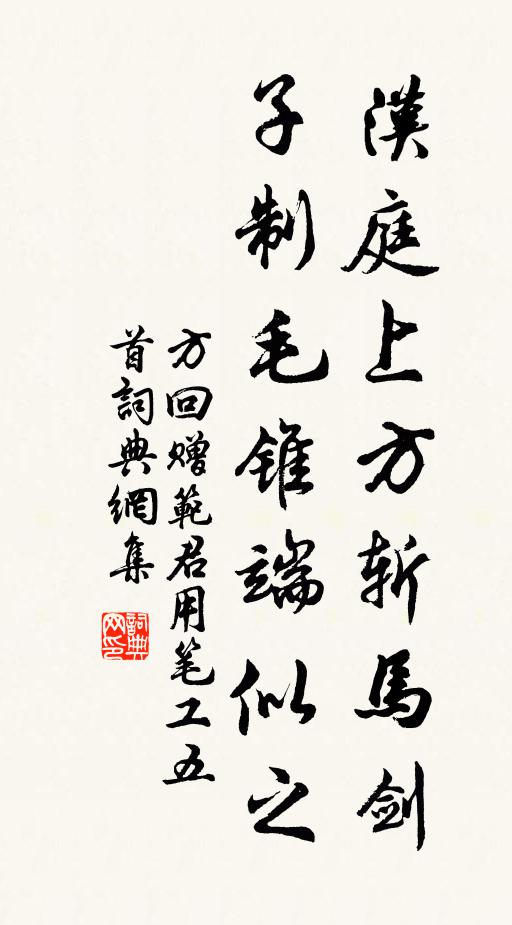 漢庭上方斩馬剑
子制毛錐端似之
方回赠範君用笔工五
首詞典網集
詞典
网印